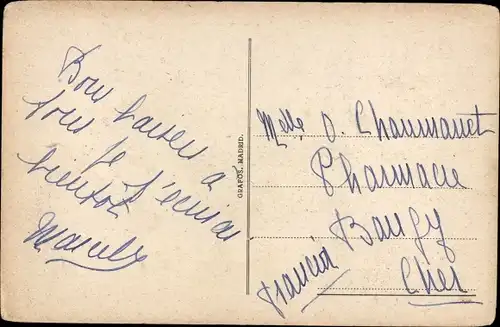 Bons baisers à
tous je t'écrirai
bientôt
GRAFOS. MADRID.
Melle O. Chaumanet
Pharmacie
Baugy
Cher